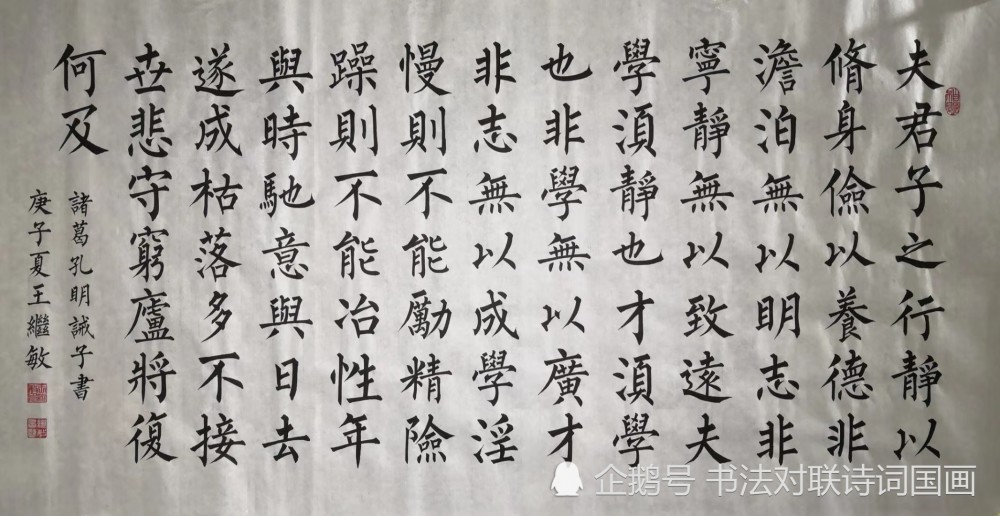 夫君子之行靜以
脩身儉以養德非
澹泊無以明志非
寧靜無以致遠夫
學湏靜也才湏學
也非學無以廣才
非志無以成學淫
慢則不能勵精險
躁則不能冶性年
與時馳意與日去
遂成枯落多不接
世悲守窮廬將復
何及
諸葛孔明誡子書
庚子夏王繼敏
企鹅号 书法对联诗词国画